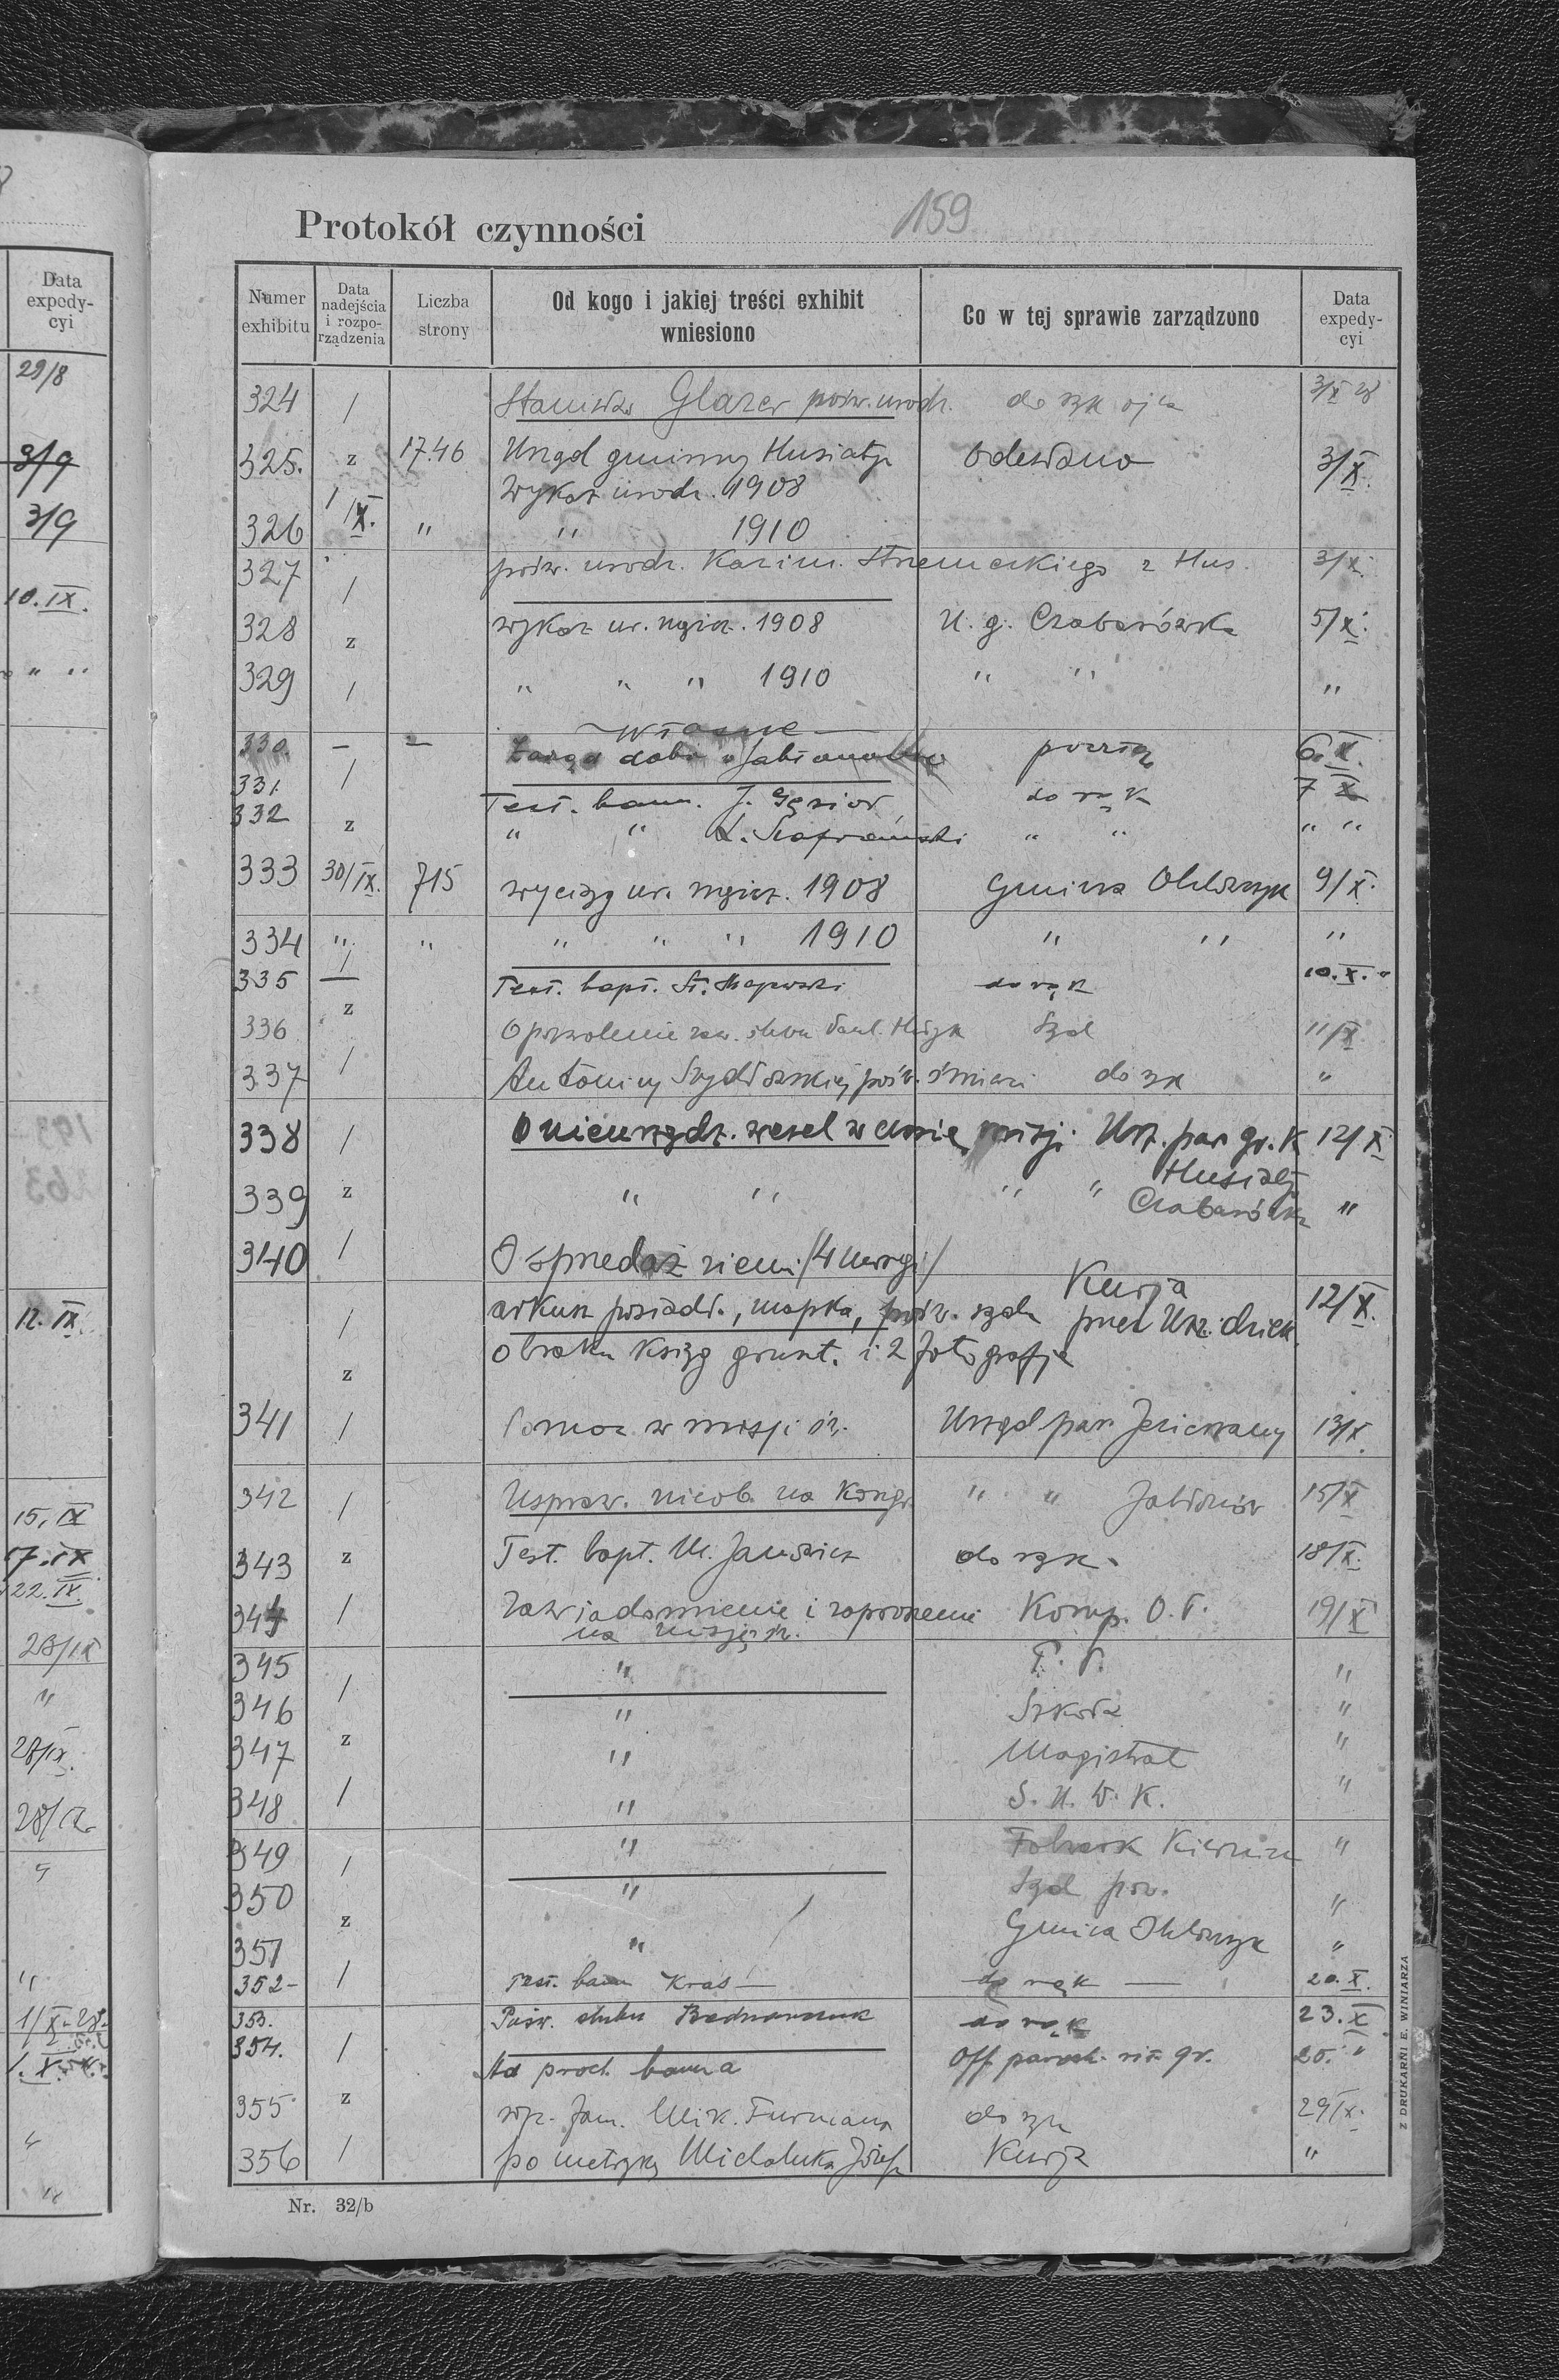 29/8
3/9
3/9
10. IX.
" "
12. IX.
15. IX
17. IX
22. IX.
28/IX
"
28/IX.
"
"
1/X. 28.
1. X.
"
"
Data
expedy-
cyi
Protokół czynności 159
Numer
exhibitu
Data
nadejścia
i rozpo-
rządzenia
Liczba
strony
Od kogo i jakiej treści exhibit
wniesiono
Co w tej sprawie zarządzono
Data
expedy-
cyi
324 / Stanisław Glazer pośw. urodz. do rąk ojca 3/X 28
325. z 1746 Urząd gminny Husiatyn Odesłano 3/X.
Wykaz urodz. 1908
326 1/IX. " " 1910
327 / pośw. urodz. Kazim. z Hus. 3/X.
328 z wykaz ur. mężcz. 1908 U. g. Czabarówka 5/X.
329 / " " " 1910 " " "
własne
330. — — Zarząd dóbr pocztą 6. X.
331. / Test. bann. J. Gąsior do rąk 7 X
332 z " " L. Szafrański " " " "
333 30/IX. 715 wyciąg ur. mężcz. 1908 Gmina Olchowczyk 9/X.
334 " " " " " 1910 " " "
335 / — Test. bapt. St. Majewski do rąk 10. X.
336 z O pozwolenie zaw. ślubu Sąd 11/X
337 / Antoniny pośw. śmierci do rąk "
338 / O nieurządz. wesel w czasie misji Urz. par. gr. k 12/X
Husiatyn
339 z " " " " Czabarówka "
340 / O sprzedaż ziemi /4 morgi/ Kurja
/ arkusz posiadł., mapka, pośw. sądu przez Urz. dziek. 12/X.
z obrotu ksiąg grunt. i 2 fotografje
341 / Pomoc w misji św. Urząd par. Jezierzany 13/X
342 / Uspraw. nieob. na Kongr. " " Jabłonów 15/X
343 z Test. bapt. M. do rąk 18/X.
344 / Zawiadomienie i zaproszenie Komp. O. P. 19/X
na misję św.
345 / " P. P. "
346 " Szkoła "
347 z " Magistrat "
348 / " S. U. W. K. "
349 / " Folwark "
350 z " Sąd pow. "
351 " Gmina Olchowczyk "
352 – / Test. bann Kras — do rąk — 20. X.
353. Pośw. ślubu Bednarczuk do rąk 23. X
354. / Ad proch. banna Off. paroch. rit. gr. 20. "
355 z Mik. Furmana do rąk 29/X.
356 / po metrykę Michaluka Józefa Kurja "
Nr. 32/b
Z DRUKARNI E. WINIARZA